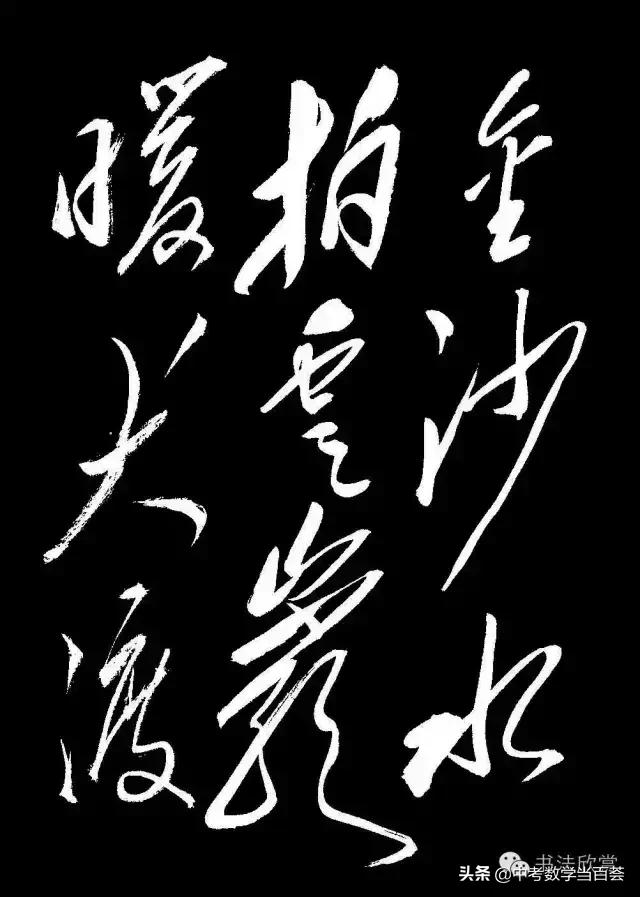 金沙水
拍雲巖
暖大渡
书法欣赏
头条 @中考数学当百荟